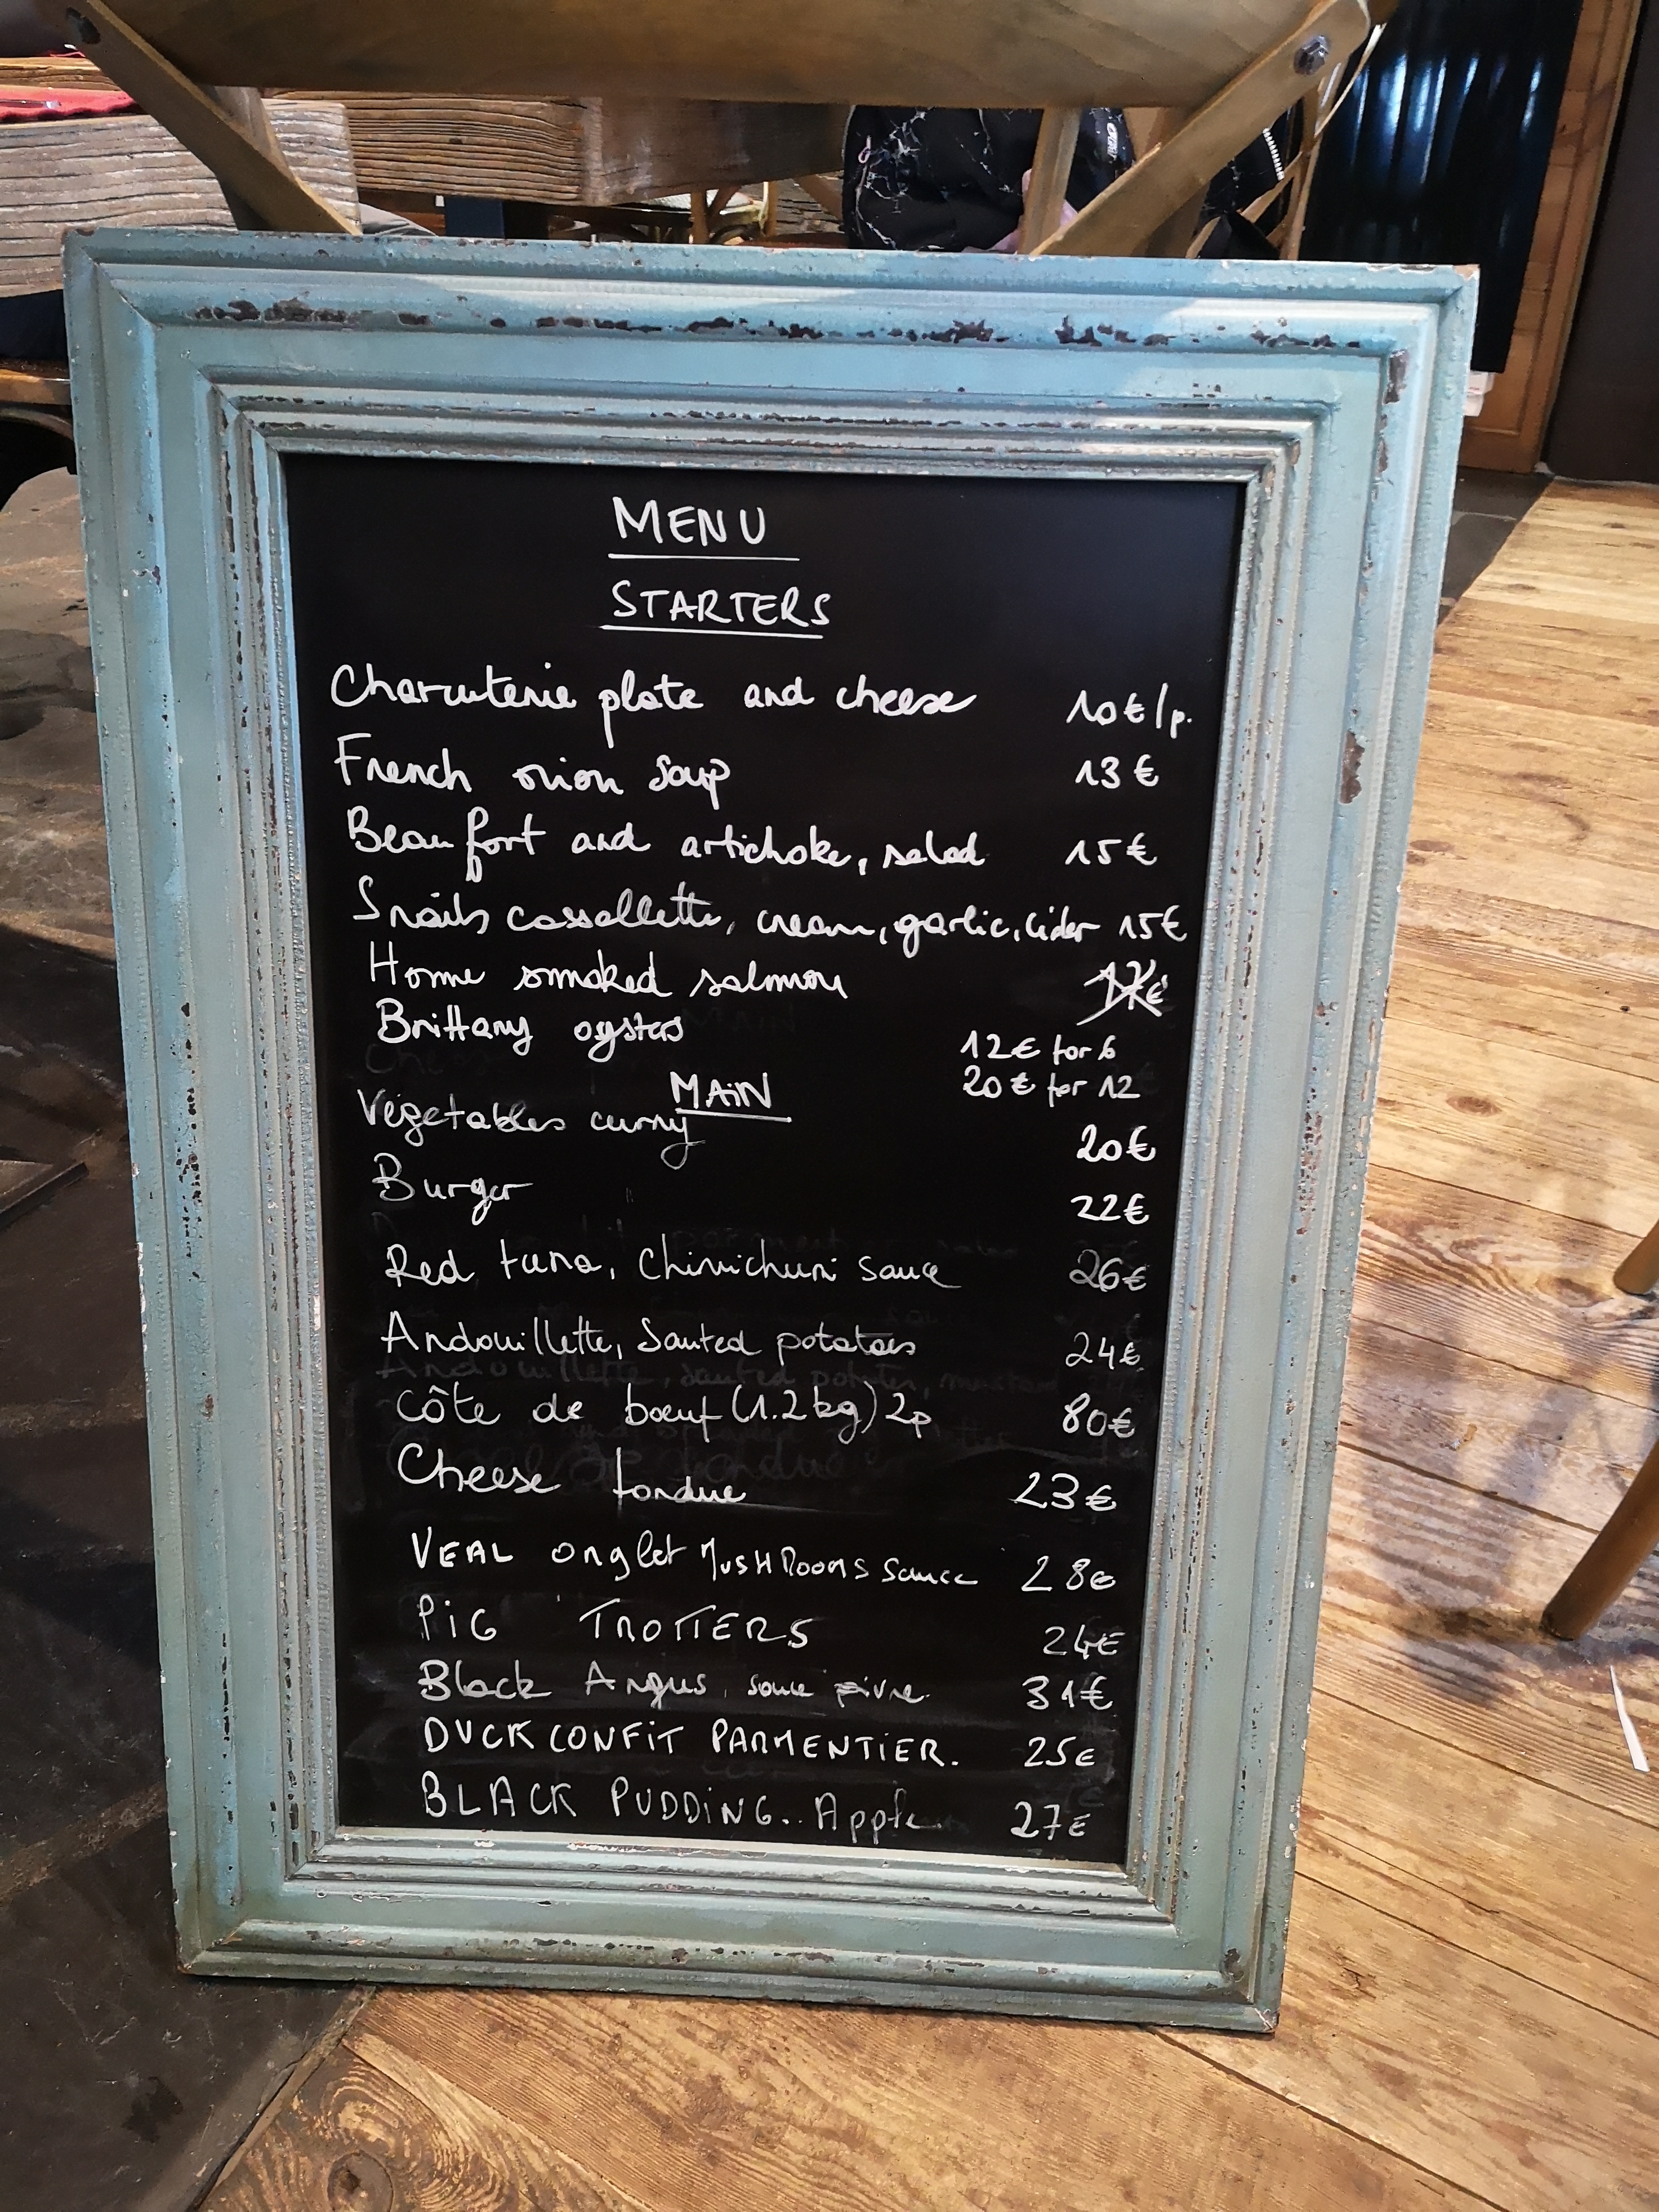 MENU
STARTERS
Charcuterie plate and cheese 10€/p.
French onion soup 13€
Beaufort and artichoke, salad 15€
Snails cassollette, cream, garlic, cider 15€
Home smoked salmon
Brittany oysters 12€ for 6
20€ for 12
MAiN
Végetables curry 20€
Burger 22€
Red tuna, Chimichurri sauce 26€
Andouillette, Sauted potatoes 24€
Côte de boeuf (1.2kg) 2p 80€
Cheese fondue 23€
VEAL onglet MUSHROOMS Sauce 28€
PiG TROTTERS 24€
Black Angus, sauce poivre 31€
DUCK CONFiT PARMENTiER. 25€
BLACK PUDDiNG.. Apple 27€